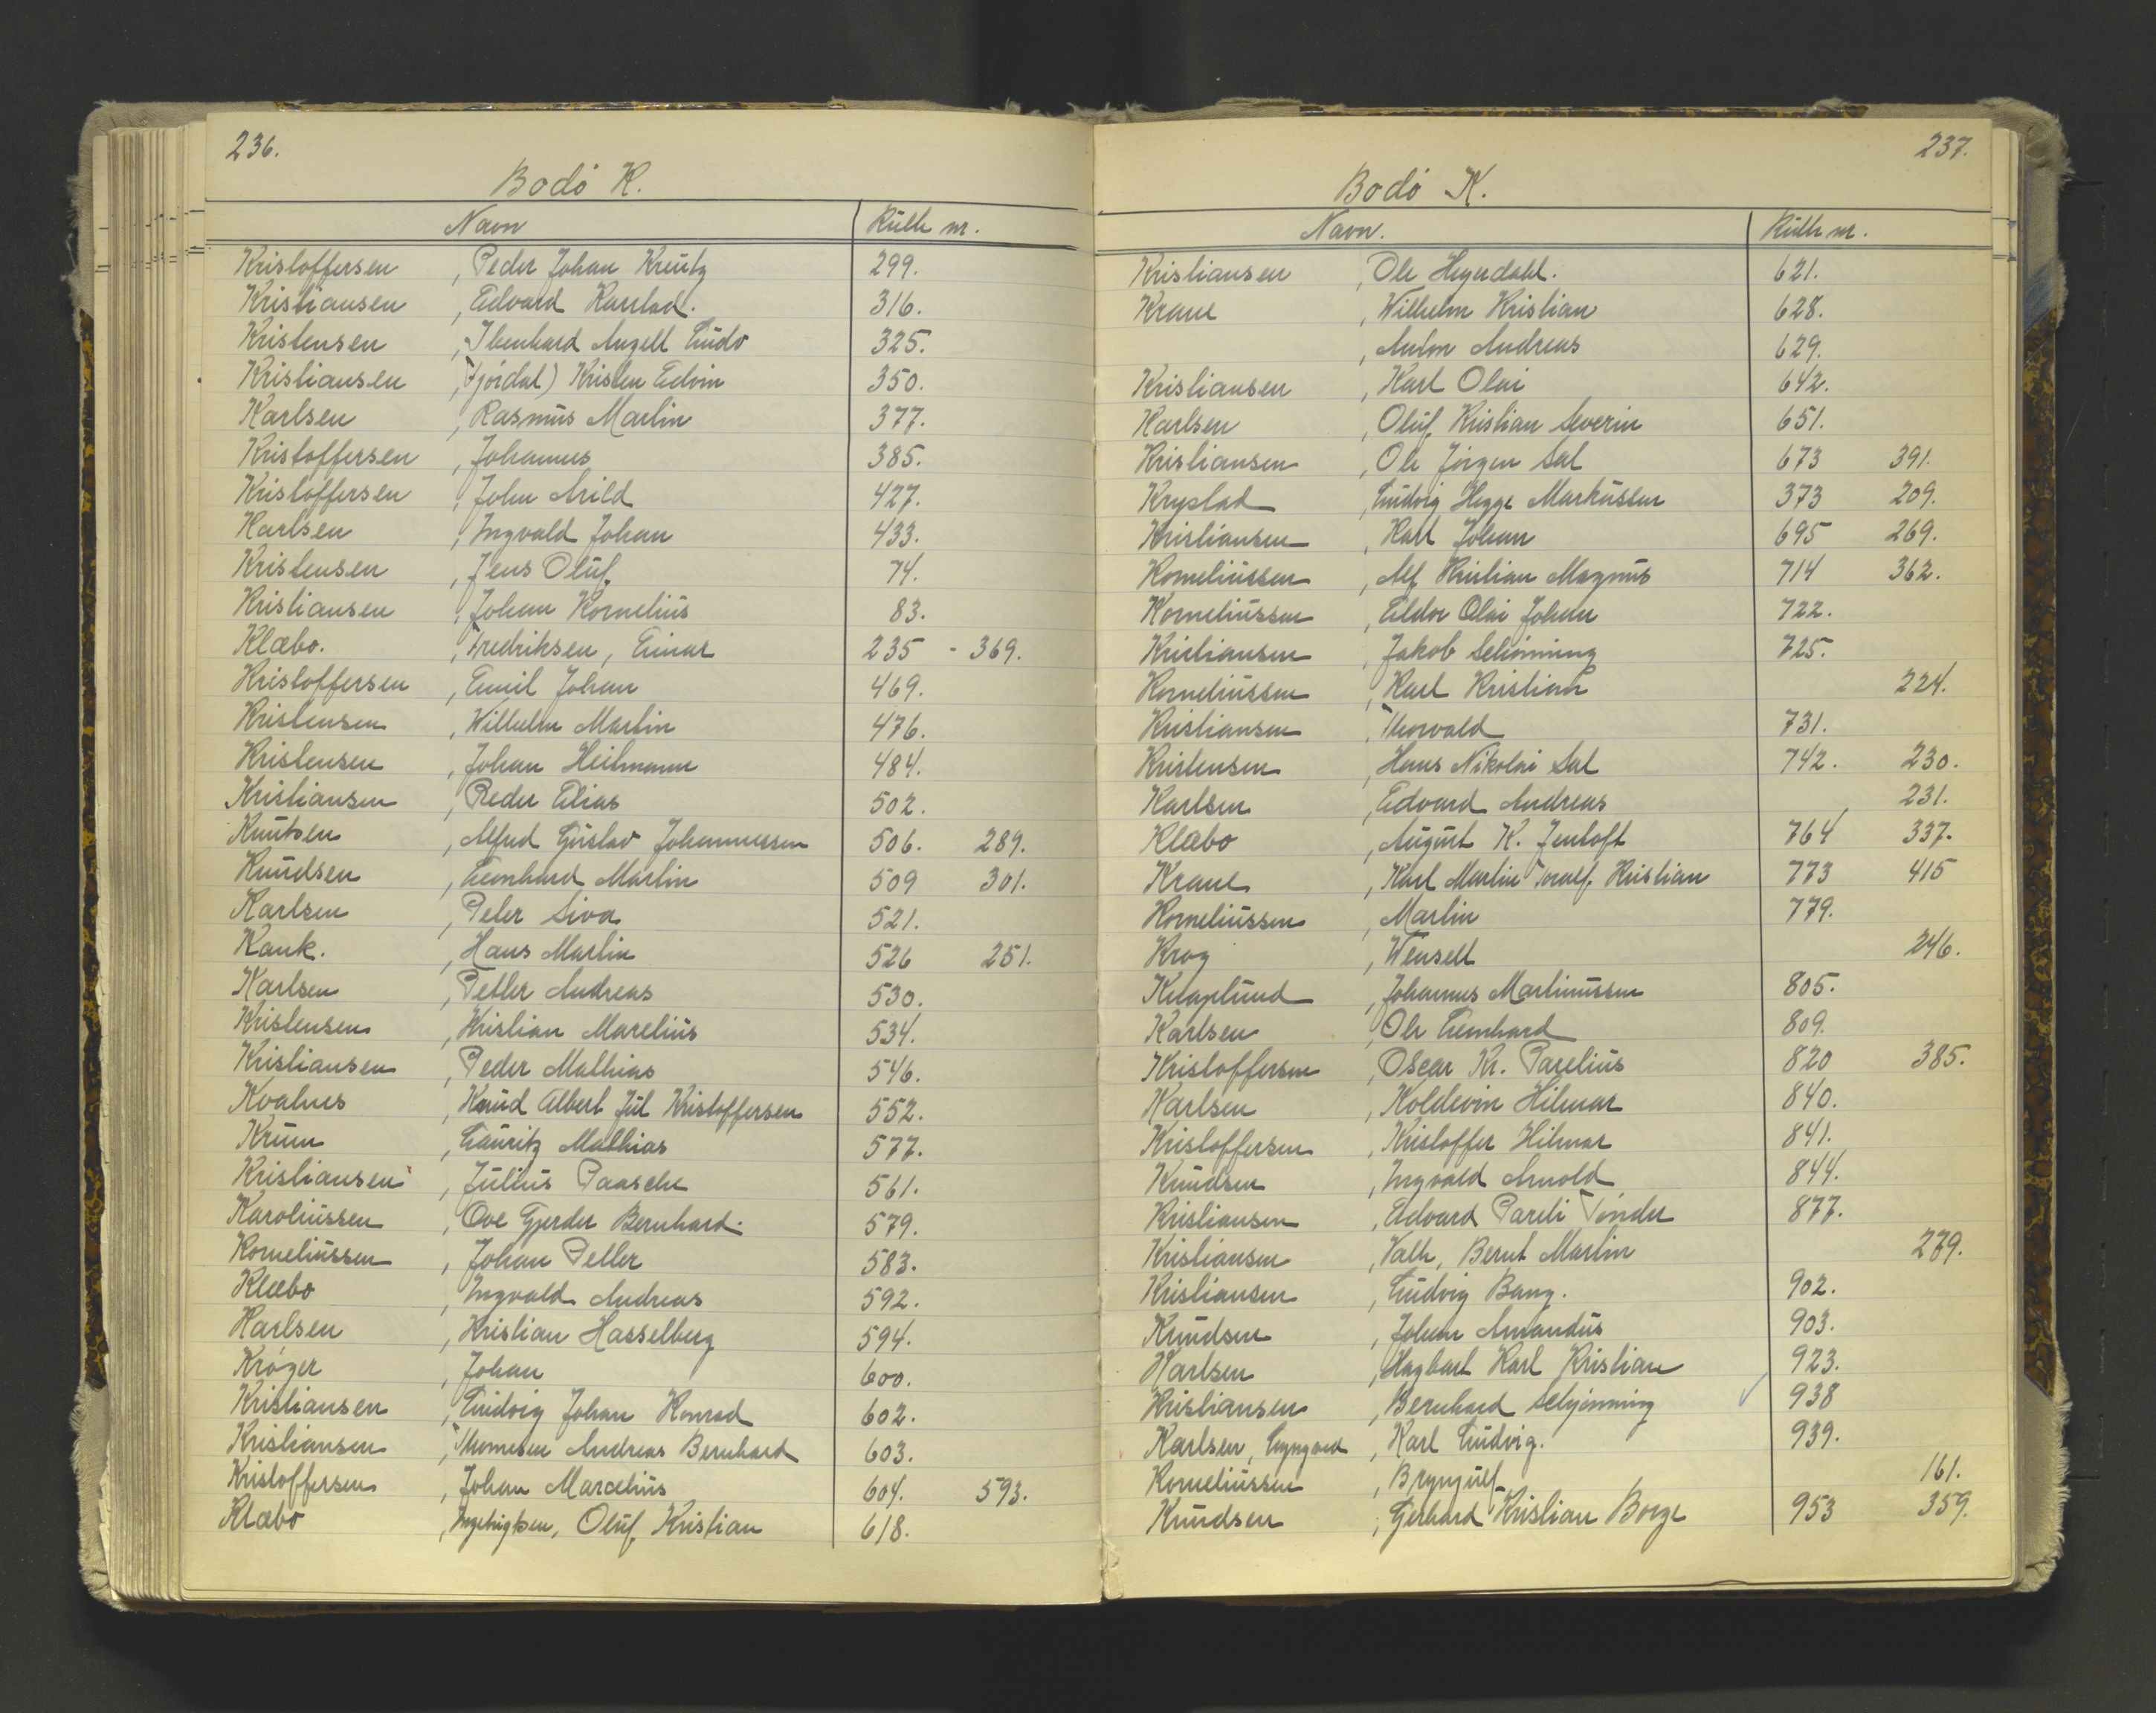 236.
Bodö K.
Navn Rulle nr.
Kristoffersen , Peder Johan Kreutz 299.
Kristiansen , Edvard Karstad. 316.
Kristensen , Ibenhard Angell Ludv 325.
Kristiansen , Fjördal) Kristen Edvin 350.
Karlsen , Rasmus Martin 377.
Kristoffersen , Johannes 385.
Kristoffersen , John Arild 427.
Karlsen , Ingvald Johan 433.
Kristensen , Jens Oluf. 74.
Kristiansen , Johan Kornelius 83.
Klæbo. , Fredriksen, Einar 235 - 369.
Kristoffersen , Emil Johan 469.
Kristensen , Wilhelm Martin 476.
Kristensen , Johan Heitmann 484.
Kristiansen , Peder Elias 502.
Knutsen , Alfred Gustav Johannessen 506. 289.
Knudsen , Leonhard Martin 509 301.
Karlsen , Peter Siva 521.
Kank. , Hans Martin 526 251.
Karlsen , Petter Andreas 530.
Kristensen , Kristian Marelius 534.
Kristiansen , Peder Mathias 546.
Kvalnes , Knud Albert Jul Kristoffersen 552.
Krum , Lauritz Mathias 577.
Kristiansen , Julius Paasche 561.
Karoliussen , Ove Gjerder Bernhard. 579.
Korneliussen , Johan Petter 583.
Klæbo , Ingvald Andreas 592.
Karlsen , Kristian Hasselberg 594.
Kröger , Johan 600.
Kristiansen , Ludvig Johan Konrad 602.
Kristiansen , Thomesen Andreas Bernhard 603.
Kristoffersen , Johan Marcelius 604. 593.
Klæbo , Ingebrigtsen, Oluf Kristian 618.
237.
Bodö K.
Navn. Rulle nr.
Kristiansen , Ole Heyerdahl. 621.
Krane , Wilhelm Kristian 628.
, Anton Andreas 629.
Kristiansen , Karl Olai 642.
Karlsen , Oluf Kristian Severin 651.
Kristiansen , Ole Jörgen Sal 673 391.
Krystad , Ludvig Hegge Markussen 373 209.
Kristiansen , Karl Johan 695 269.
Korneliussen , Alf Kristian Magnus 714 362.
Korneliussen , Eldor Olai Johan 722.
Kristiansen , Jakob Schönning 725.
Korneliussen , Karl Kristian 224.
Kristiansen , Thorvald 731.
Kristensen , Hans Nikolai Sal 742. 230.
Karlsen , Edvard Andreas 231.
Klæbo , August K. Jentoft 764 337.
Krane , Karl Martin Toralf. Kristian 773 415
Korneliussen , Martin 779.
Krog , Wensell 246.
Knaplund , Johannes Martinussen 805.
Karlsen , Ole Leonhard 809.
Kristoffersen , Oscar Kr. Parelius 820 385.
Karlsen , Koldevin Hilmar 840.
Kristoffersen , Kristoffer Hilmar 841.
Knudsen , Ingvald Arnold 844.
Kristiansen , Edvard Pareli Tönder 877.
Kristiansen , Valh, Bernt Martin 279.
Kristiansen , Ludvig Bang. 902.
Knudsen , Johan Amandus 903.
Karlsen , Hagbart Karl Kristian 923.
Kristiansen , Bernhard Schjönning 938
Karlsen, Lyngved , Karl Ludvig. 939.
Korneliussen , Brynjulf 161.
Knudsen , Gerhard Kristian Borge 953 359.